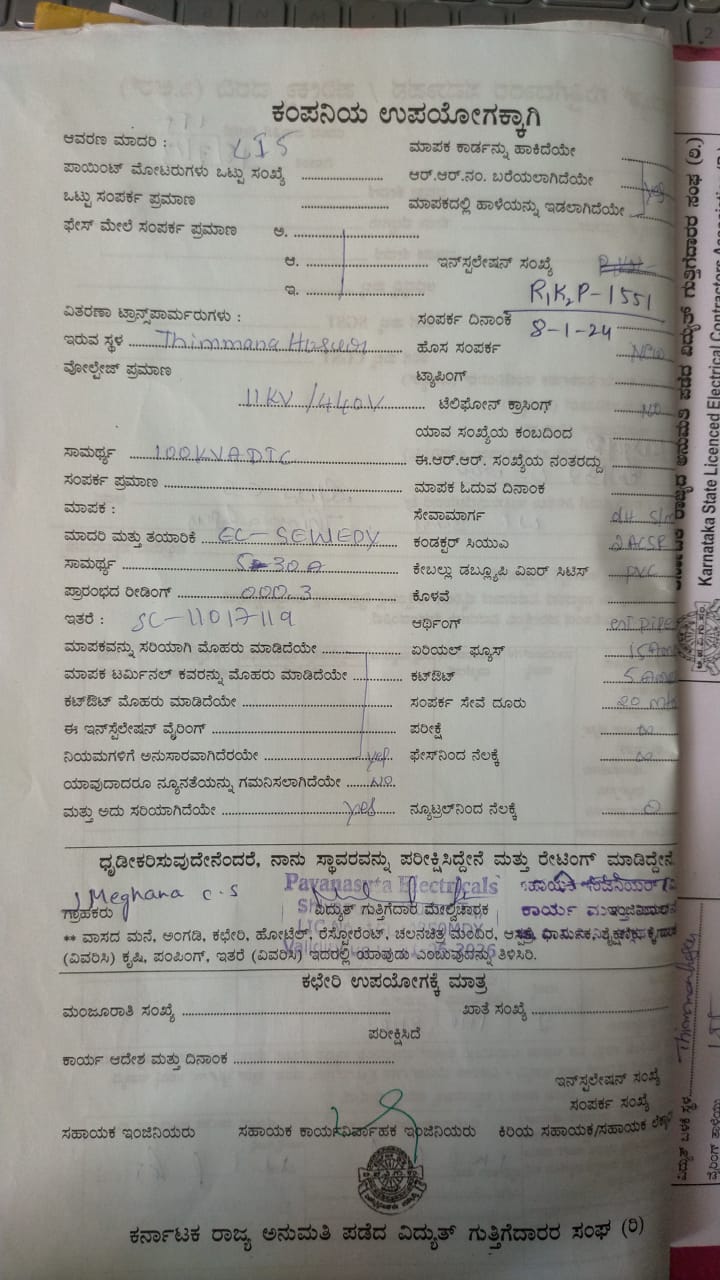 ಕಂಪನಿಯ ಉಪಯೋಗಕ್ಕಾಗಿ
ಆವರಣ ಮಾದರಿ : LIS
ಪಾಯಿಂಟ್ ಮೋಟರುಗಳು ಒಟ್ಟು ಸಂಖ್ಯೆ ....................
ಒಟ್ಟು ಸಂಪರ್ಕ ಪ್ರಮಾಣ ....................
ಫೇಸ್ ಮೇಲೆ ಸಂಪರ್ಕ ಪ್ರಮಾಣ ಅ. ....................
ಆ. ....................
ಇ. ....................
ವಿತರಣಾ ಟ್ರಾನ್ಸ್‌ಪಾರ್ಮರುಗಳು :
ಇರುವ ಸ್ಥಳ Thimmana
ವೋಲ್ಟೇಜ್ ಪ್ರಮಾಣ
11KV/440V
ಸಾಮರ್ಥ್ಯ 100KVA DTC
ಸಂಪರ್ಕ ಪ್ರಮಾಣ ....................
ಮಾಪಕ :
ಮಾದರಿ ಮತ್ತು ತಯಾರಿಕೆ EC-SEWEDY
ಸಾಮರ್ಥ್ಯ 5-30A
ಪ್ರಾರಂಭದ ರೀಡಿಂಗ್ 000.3
ಇತರೆ : SC-11017119
ಮಾಪಕವನ್ನು ಸರಿಯಾಗಿ ಮೊಹರು ಮಾಡಿದೆಯೇ ....................
ಮಾಪಕ ಟರ್ಮಿನಲ್ ಕವರನ್ನು ಮೊಹರು ಮಾಡಿದೆಯೇ ....................
ಕಟ್‌ಔಟ್ ಮೊಹರು ಮಾಡಿದೆಯೇ ....................
ಈ ಇನ್‌ಸ್ಟಲೇಷನ್ ವೈರಿಂಗ್ ....................
ನಿಯಮಗಳಿಗೆ ಅನುಸಾರವಾಗಿದೆರಯೇ .................... yes
ಯಾವುದಾದರೂ ನ್ಯೂನತೆಯನ್ನು ಗಮನಿಸಲಾಗಿದೆಯೇ ...... NO
ಮತ್ತು ಅದು ಸರಿಯಾಗಿದೆಯೇ .................... yes
ಮಾಪಕ ಕಾರ್ಡನ್ನು ಹಾಕಿದೆಯೇ ..........
ಆರ್.ಆರ್.ನಂ. ಬರೆಯಲಾಗಿದೆಯೇ .......... yes
ಮಾಪಕದಲ್ಲಿ ಹಾಳೆಯನ್ನು ಇಡಲಾಗಿದೆಯೇ ..........
ಇನ್‌ಸ್ಟಲೇಷನ್ ಸಂಖ್ಯೆ
R,K2P-1551
ಸಂಪರ್ಕ ದಿನಾಂಕ 8-1-24
ಹೊಸ ಸಂಪರ್ಕ New
ಟ್ಯಾಪಿಂಗ್ ..........
ಟೆಲಿಫೋನ್ ಕ್ರಾಸಿಂಗ್ NO
ಯಾವ ಸಂಖ್ಯೆಯ ಕಂಬದಿಂದ ..........
ಈ.ಆರ್.ಆರ್. ಸಂಖ್ಯೆಯ ನಂತರದ್ದು ..........
ಮಾಪಕ ಓದುವ ದಿನಾಂಕ ..........
ಸೇವಾಮಾರ್ಗ OH
ಕಂಡಕ್ಟರ್ ಸಿಯುಎ 2ACSR
ಕೇಬಲ್ಲು ಡಬ್ಲ್ಯೂಪಿ ವಿಐರ್ ಸಿಟಿಸ್ PVC
ಕೊಳವೆ ..........
ಆರ್ಥಿಂಗ್
ಏರಿಯಲ್ ಫ್ಯೂಸ್ 15Am
ಕಟ್‌ಔಟ್ 5Am
ಸಂಪರ್ಕ ಸೇವೆ ದೂರು 20 Mt
ಪರೀಕ್ಷೆ ∞
ಫೇಸ್‌ನಿಂದ ನೆಲಕ್ಕೆ ∞
ನ್ಯೂಟ್ರಲ್‌ನಿಂದ ನೆಲಕ್ಕೆ 0
ಧೃಡೀಕರಿಸುವುದೇನೆಂದರೆ, ನಾನು ಸ್ಥಾವರವನ್ನು ಪರೀಕ್ಷಿಸಿದ್ದೇನೆ ಮತ್ತು ರೇಟಿಂಗ್ ಮಾಡಿದ್ದೇನೆ
Meghana C.S
Pavanasuta Electricals
ಗ್ರಾಹಕರು ವಿದ್ಯುತ್ ಗುತ್ತಿಗೆದಾರ ಮೇಲ್ವಿಚಾರಕ
** ವಾಸದ ಮನೆ, ಅಂಗಡಿ, ಕಛೇರಿ, ಹೋಟೆಲ್, ರೆಸ್ಟೋರೆಂಟ್, ಚಲನಚಿತ್ರ ಮಂದಿರ,
(ವಿವರಿಸಿ) ಕೃಷಿ, ಪಂಪಿಂಗ್, ಇತರೆ (ವಿವರಿಸಿ) ಇದರಲ್ಲಿ ಯಾವುದು ಎಂಬುವುದನ್ನು ತಿಳಿಸಿರಿ.
ಕಛೇರಿ ಉಪಯೋಗಕ್ಕೆ ಮಾತ್ರ
ಮಂಜೂರಾತಿ ಸಂಖ್ಯೆ .................... ಖಾತೆ ಸಂಖ್ಯೆ ....................
ಪರೀಕ್ಷಿಸಿದೆ
ಕಾರ್ಯ ಆದೇಶ ಮತ್ತು ದಿನಾಂಕ ....................
ಇನ್‌ಸ್ಟಲೇಷನ್ ಸಂಖ್ಯೆ
ಸಂಪರ್ಕ ಸಂಖ್ಯೆ
ಸಹಾಯಕ ಇಂಜಿನಿಯರು ಸಹಾಯಕ ಕಾರ್ಯನಿರ್ವಾಹಕ ಇಂಜಿನಿಯರು ಕಿರಿಯ ಸಹಾಯಕ/ಸಹಾಯಕ
ಕರ್ನಾಟಕ ರಾಜ್ಯ ಅನುಮತಿ ಪಡೆದ ವಿದ್ಯುತ್ ಗುತ್ತಿಗೆದಾರರ ಸಂಘ (ರಿ)
ರಾಜ್ಯದ ಅನುಮತಿ ಪಡೆದ ವಿದ್ಯುತ್ ಗುತ್ತಿಗೆದಾರರ ಸಂಘ (ರಿ.)
Karnataka State Licenced Electrical Contractors Association
ವಿದ್ಯುತ್ ಬಳಕೆ ಸ್ಥಳ